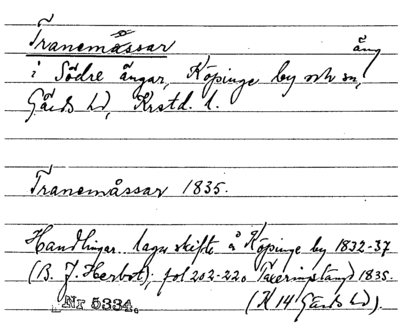 Tranemåssar äng
i Södre ängar, Köpinge by och sn,
Gärds hd, Krstd. l.
Tranemåssar 1835.
Handlingar.. laga skifte å Köpinge by 1832-37
(B. J. Herbst); fol 202-220 Taxeringslängd 1835.
Nr 5334. (K 14 Gärds hd).